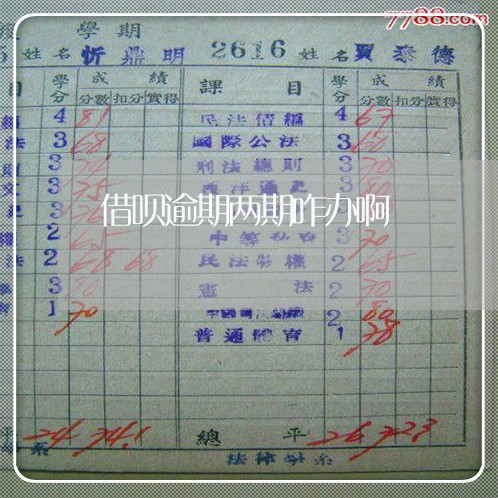 7788.com
學期
姓名 忻鼎明 2616 姓名 賈泰德
目 學分 成績 課目 學分 成績
分數 扣分 實得 分數 扣分 實得
4 81 民法債編 4 67
法 3 68 國際公法 3 60
3 刑法總則 3 70
3 75 西洋通史 3 80
借呗逾期两期咋办啊
2 65 3 70
法 2 68 68 民法物權 2 65
3 80 憲法 2 70
1 70 2 80
普通體育 1 78
平 24 74.1 總平 26 72.3
系 法律學系